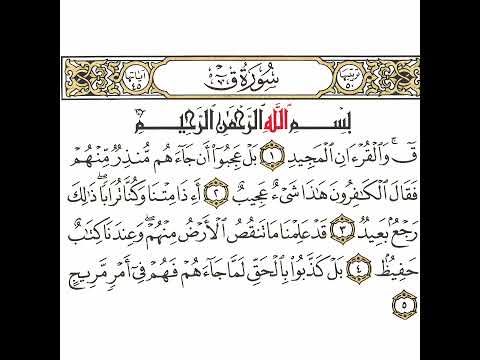 ترتيبها ٥٠
سُورَةُ قٓ
آياتها ٤٥
بِسْمِ ٱللَّهِ ٱلرَّحْمَٰنِ ٱلرَّحِيمِ
قٓ ۚ وَٱلْقُرْءَانِ ٱلْمَجِيدِ ١ بَلْ عَجِبُوٓا۟ أَن جَآءَهُم مُّنذِرٌ مِّنْهُمْ
فَقَالَ ٱلْكَٰفِرُونَ هَٰذَا شَىْءٌ عَجِيبٌ ٢ أَءِذَا مِتْنَا وَكُنَّا تُرَابًا ۖ ذَٰلِكَ
رَجْعٌۢ بَعِيدٌ ٣ قَدْ عَلِمْنَا مَا تَنقُصُ ٱلْأَرْضُ مِنْهُمْ ۖ وَعِندَنَا كِتَٰبٌ
حَفِيظٌۢ ٤ بَلْ كَذَّبُوا۟ بِٱلْحَقِّ لَمَّا جَآءَهُمْ فَهُمْ فِىٓ أَمْرٍ مَّرِيجٍ
٥